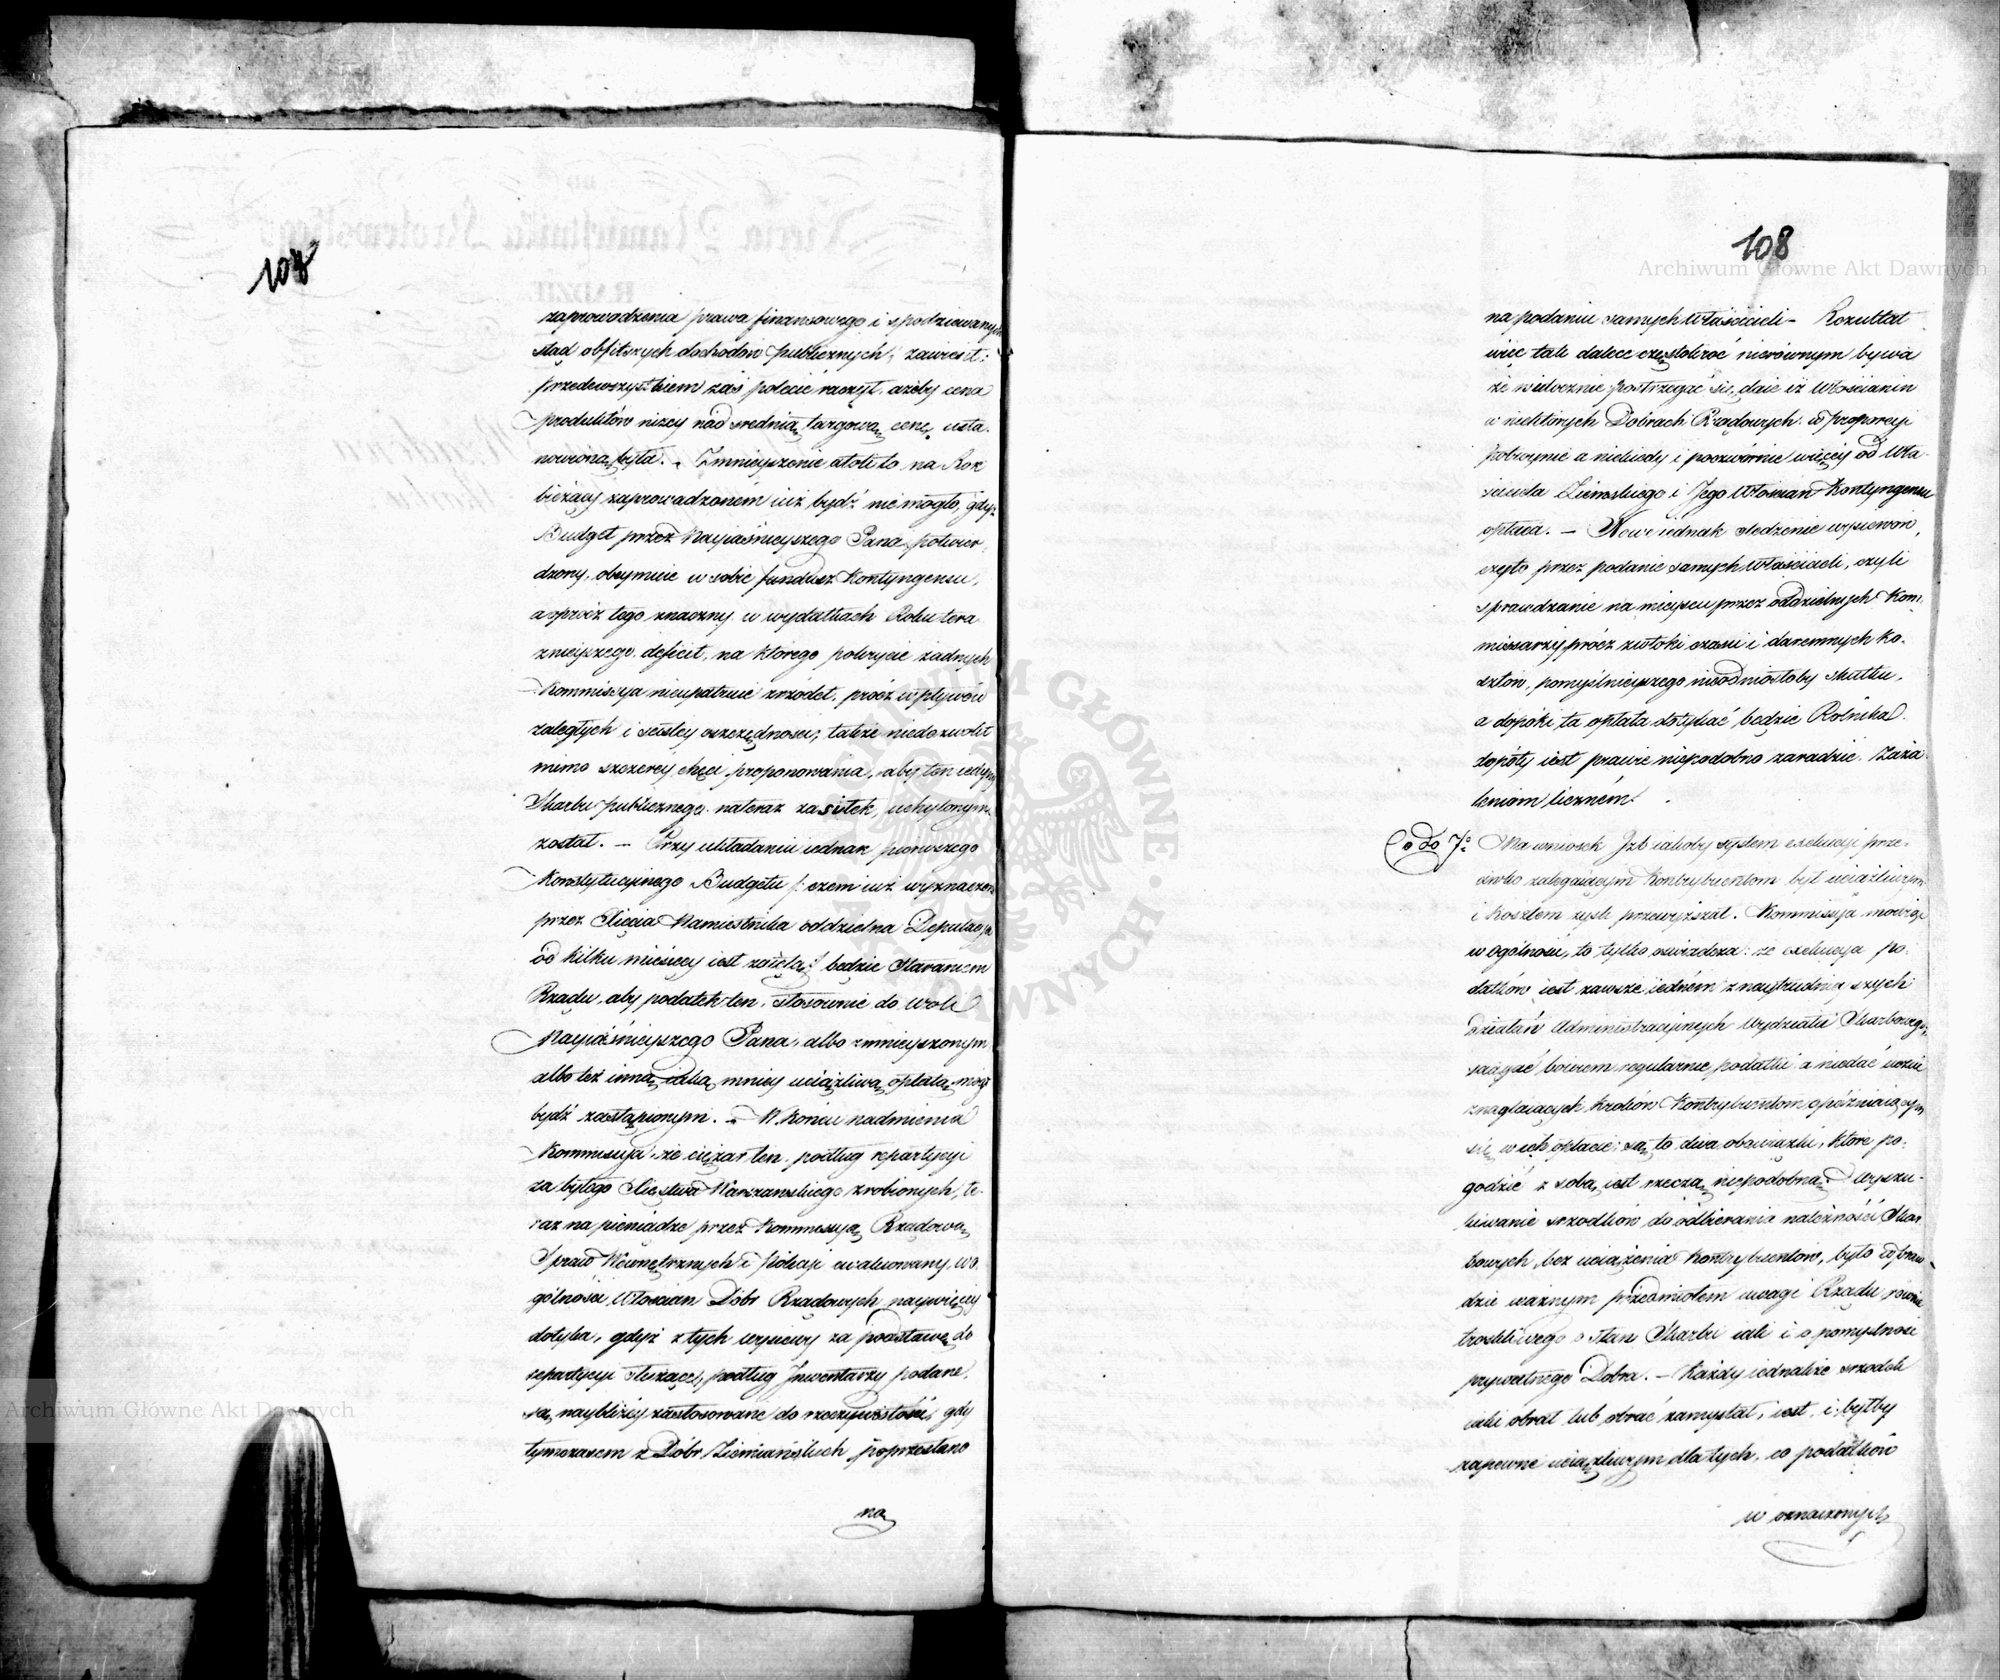 108
zaprowadzenia prawa finansowego i spodziewanych
stąd obfitszych dochodów publicznych, zawiesił:
przedewszystkiem zaś polecić raczył, ażeby cena
produktów niżey nad srednią targową cenę usta-
nowioną była. – Zmnieyszenie atoli to na Rok
bieżący zaprowadzonem iuż bydź nie mogło, gdyż
Budget przez Nayiaśnieyszego Pana potwier-
dzony, obeymuie w sobie fundusz Kontyngensu,
a oprócz tego znaczny w wydatkach Roku tera
znieyszego deficit, na którego pokrycie żadnych
Kommissya nieupatruie źrzódeł, prócz wpływów
zaległych i scisłey oszczędności; także niedozwolił
mimo szczerey chęci proponowania, aby ten iedyny
Skarbu publicznego nateraz zasiłek, uchylonym
został. – Przy układaniu iednak pierwszego
Konstytucyinego Budgetu /: czem iuż wyznaczona
przez Xięcia Namiestnika oddzielna Deputacya
od kilku miesięcy iest zaięta :/ będzie staraniem
Rządu, aby podatek ten, stosownie do woli
Nayiaśnieyszego Pana, albo zmnieyszonym
albo też inną iaką mniey uciążliwą opłatą mógł
bydź zastąpionym. – W końcu nadmienia
Kommissya, że ciężar ten, podług repartycyi
za byłego Xięstwa Warszawskiego zrobionych, te-
raz na pieniądze przez Kommissyą Rządową
Spraw Wewnętrznych i Policyi ewaluowany, wo-
gólności Włoscian Dóbr Rządowych naywięcey
dotyka, gdyż z tych wysiewy za podstawę do
repartycyi służące, podług Inwentarzy podane,
są naybliżey zastosowane do rzeczywistości, gdy
tymczasem z Dóbr Ziemiańskich poprzestano
na
108
na podaniu samych Właścicieli – Rezultat
więc tak dalece częstokroć nierównym bywa
że widocznie postrzegać się daie iż Włościanin
w niektórych Dobrach Rządowych w proporcyi
podwóynie a niekiedy i poczwórnie więcey od Wła-
sciciela Ziemskiego i Jego Włoscian Kontyngensu
opłaca. – Nowe iednak sledzenie wysiewów,
czyto przez podanie samych Właścicieli, czyli
sprawdzanie na mieyscu przez oddzielnych Kom-
missarzy prócz zwłoki czasu i daremnych ko-
sztów, pomyślnieyszego nieodniosłoby skutku,
a dopóki ta opłata dotykać będzie Rolnika
dopóty iest prawie niepodobno zaradzić Zaża-
leniom licznem.
Co do 7º Na wniosek Izb iakoby system exekucyi prze-
ciwko zalegaiącym Kontrybuentom był uciążliwym
i kosztem zysk przewyższał. Kommissya mówiąc
w ogólności, to tylko oswiadcza: że exekucya po-
datków iest zawsze iedném z naytrudnieyszych
działań Administracyinych Wydziału Skarbowego;
sciągać bowiem regularnie podatki a niedać uczuć
znaglaiących kroków Kontrybuentom opóźniaiącym
się w ich opłacie; są to dwa obowiązki, które po-
godzić z sobą iest rzeczą niepodobną. Wyszu-
kiwanie srzodków do odbierania należności Skar-
bowych, bez uciążenia Kontrybuentów, było wpraw-
dzie ważnym przedmiotem uwagi Rządu równie
troskliwego o stan Skarbu iak i o pomyslność
prywatnego Dobra. – Każdy iednakże srzodek
iaki obrał lub obrać zamyslał, iest i byłby
zapewne uciążliwym dla tych, co podatków
w oznaczonych